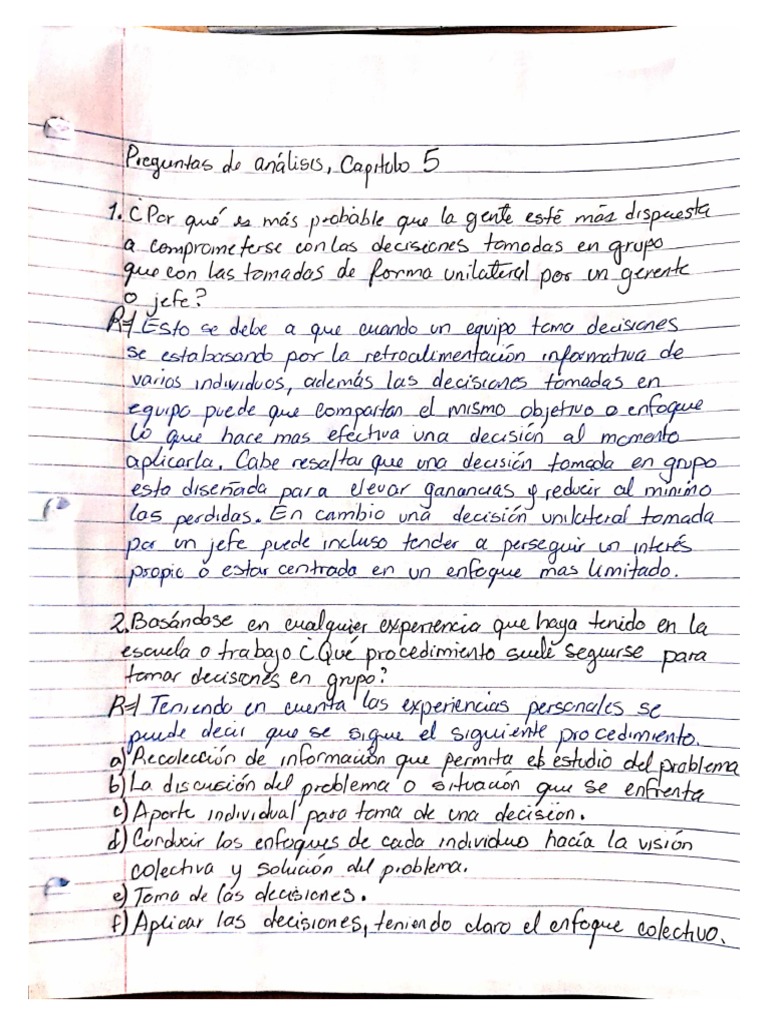 Preguntas de análisis, Capitulo 5
1. ¿Por qué es más probable que la gente esté más dispuesta
a comprometerse con las decisiones tomadas en grupo
que con las tomadas de forma unilateral por un gerente
o jefe?
R=/ Esto se debe a que cuando un equipo toma decisiones
se esta basando por la retroalimentación informativa de
varios individuos, además las decisiones tomadas en
equipo puede que compartan el mismo objetivo o enfoque
lo que hace mas efectiva una decisión al momento
aplicarla. Cabe resaltar que una decisión tomada en grupo
esta diseñada para elevar ganancias y reducir al minimo
las perdidas. En cambio una decisión unilateral tomada
por un jefe puede incluso tender a perseguir un interés
propio o estar centrada en un enfoque mas limitado.
2. Basándose en cualquier experiencia que haya tenido en la
escuela o trabajo ¿Qué procedimiento suele seguirse para
tomar decisiones en grupo?
R=/ Teniendo en cuenta las experiencias personales se
puede decir que se sigue el siguiente procedimiento.
a) Recolección de información que permita el estudio del problema
b) La discusión del problema o situación que se enfrenta
c) Aporte individual para toma de una decisión.
d) Conducir los enfoques de cada individuo hacía la visión
colectiva y solución del problema.
e) Toma de las decisiones.
f) Aplicar las decisiones, teniendo claro el enfoque colectivo.